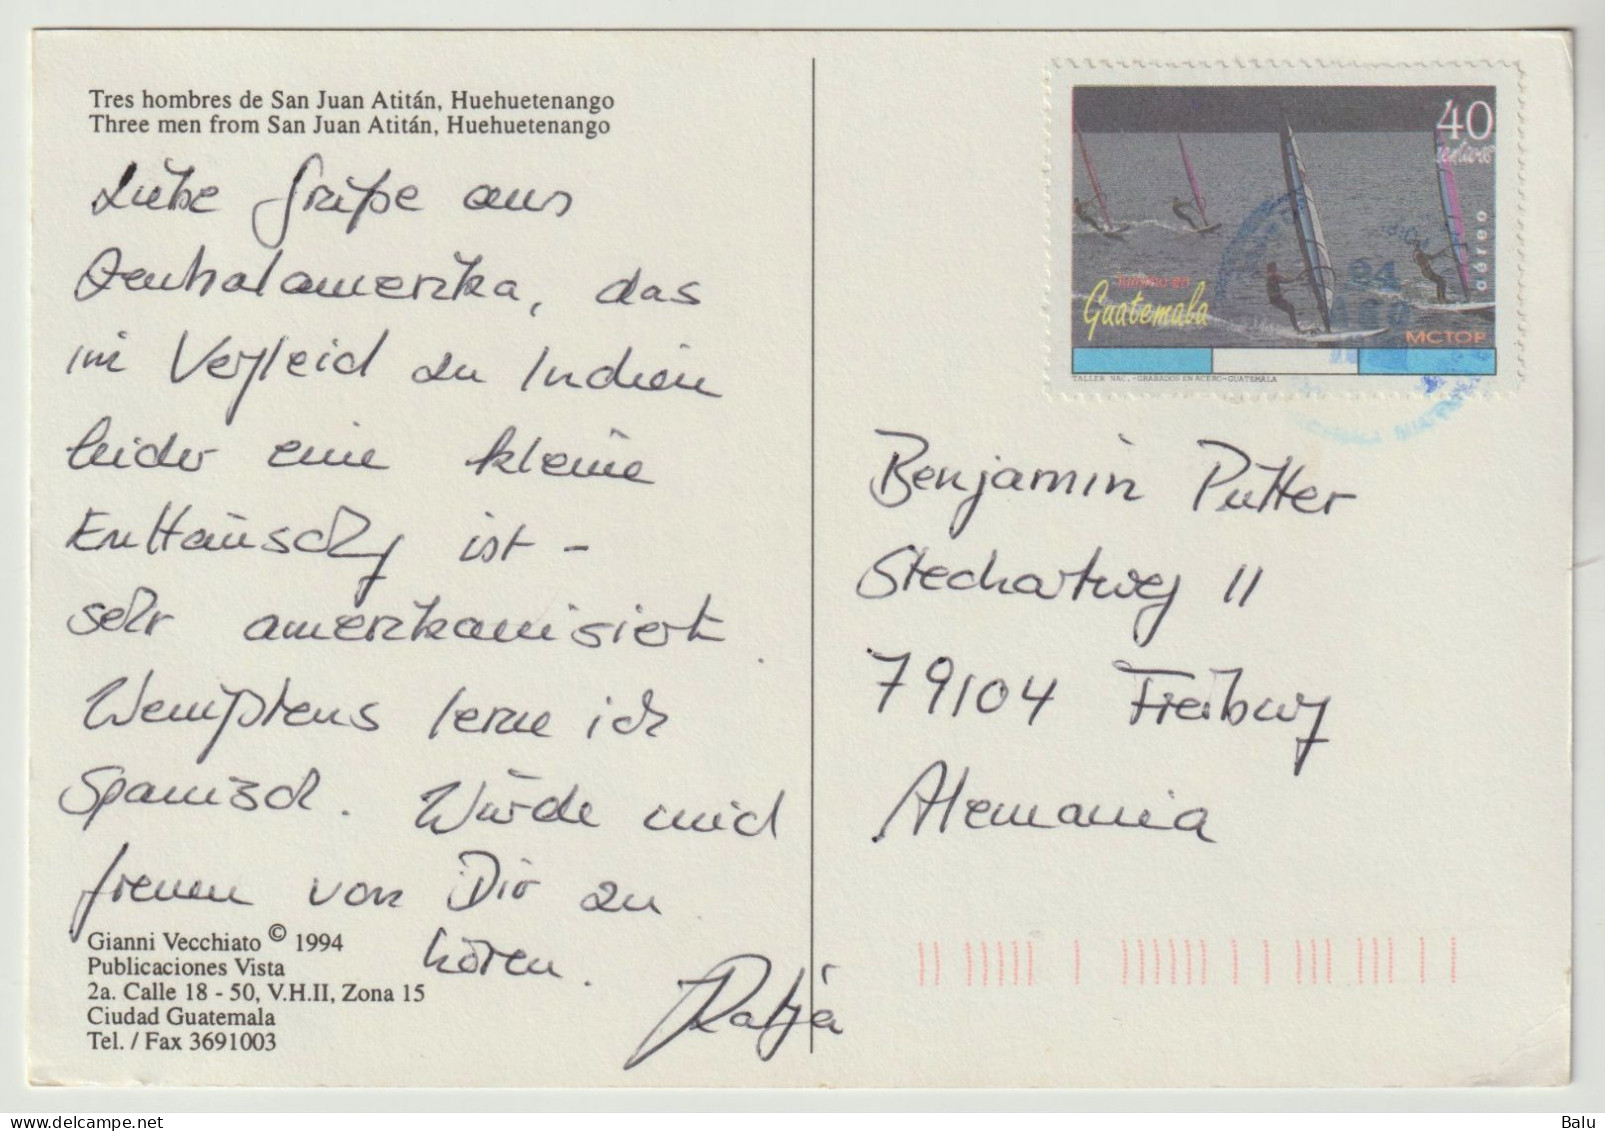 Tres hombres de San Juan Atitán, Huehuetenango
Three men from San Juan Atitán, Huehuetenango
Liebe Grüße aus
Zentralamerika, das
im Vergleich zu Indien
leider eine kleine
Enttäuschg ist -
sehr amerikanisiert.
Wenigstens lerne ich
Spanisch. Würde mich
freuen von Dir zu
hören.
Katja
Gianni Vecchiato © 1994
Publicaciones Vista
2a. Calle 18 - 50, V.H.II, Zona 15
Ciudad Guatemala
Tel. / Fax 3691003
40
centavos
aéreo
turismo en
Guatemala
MCTOP
TALLER NAC.-GRABADOS EN ACERO-GUATEMALA
Benjamin Putter
Stechertweg 11
79104 Freiburg
Alemania
Balu